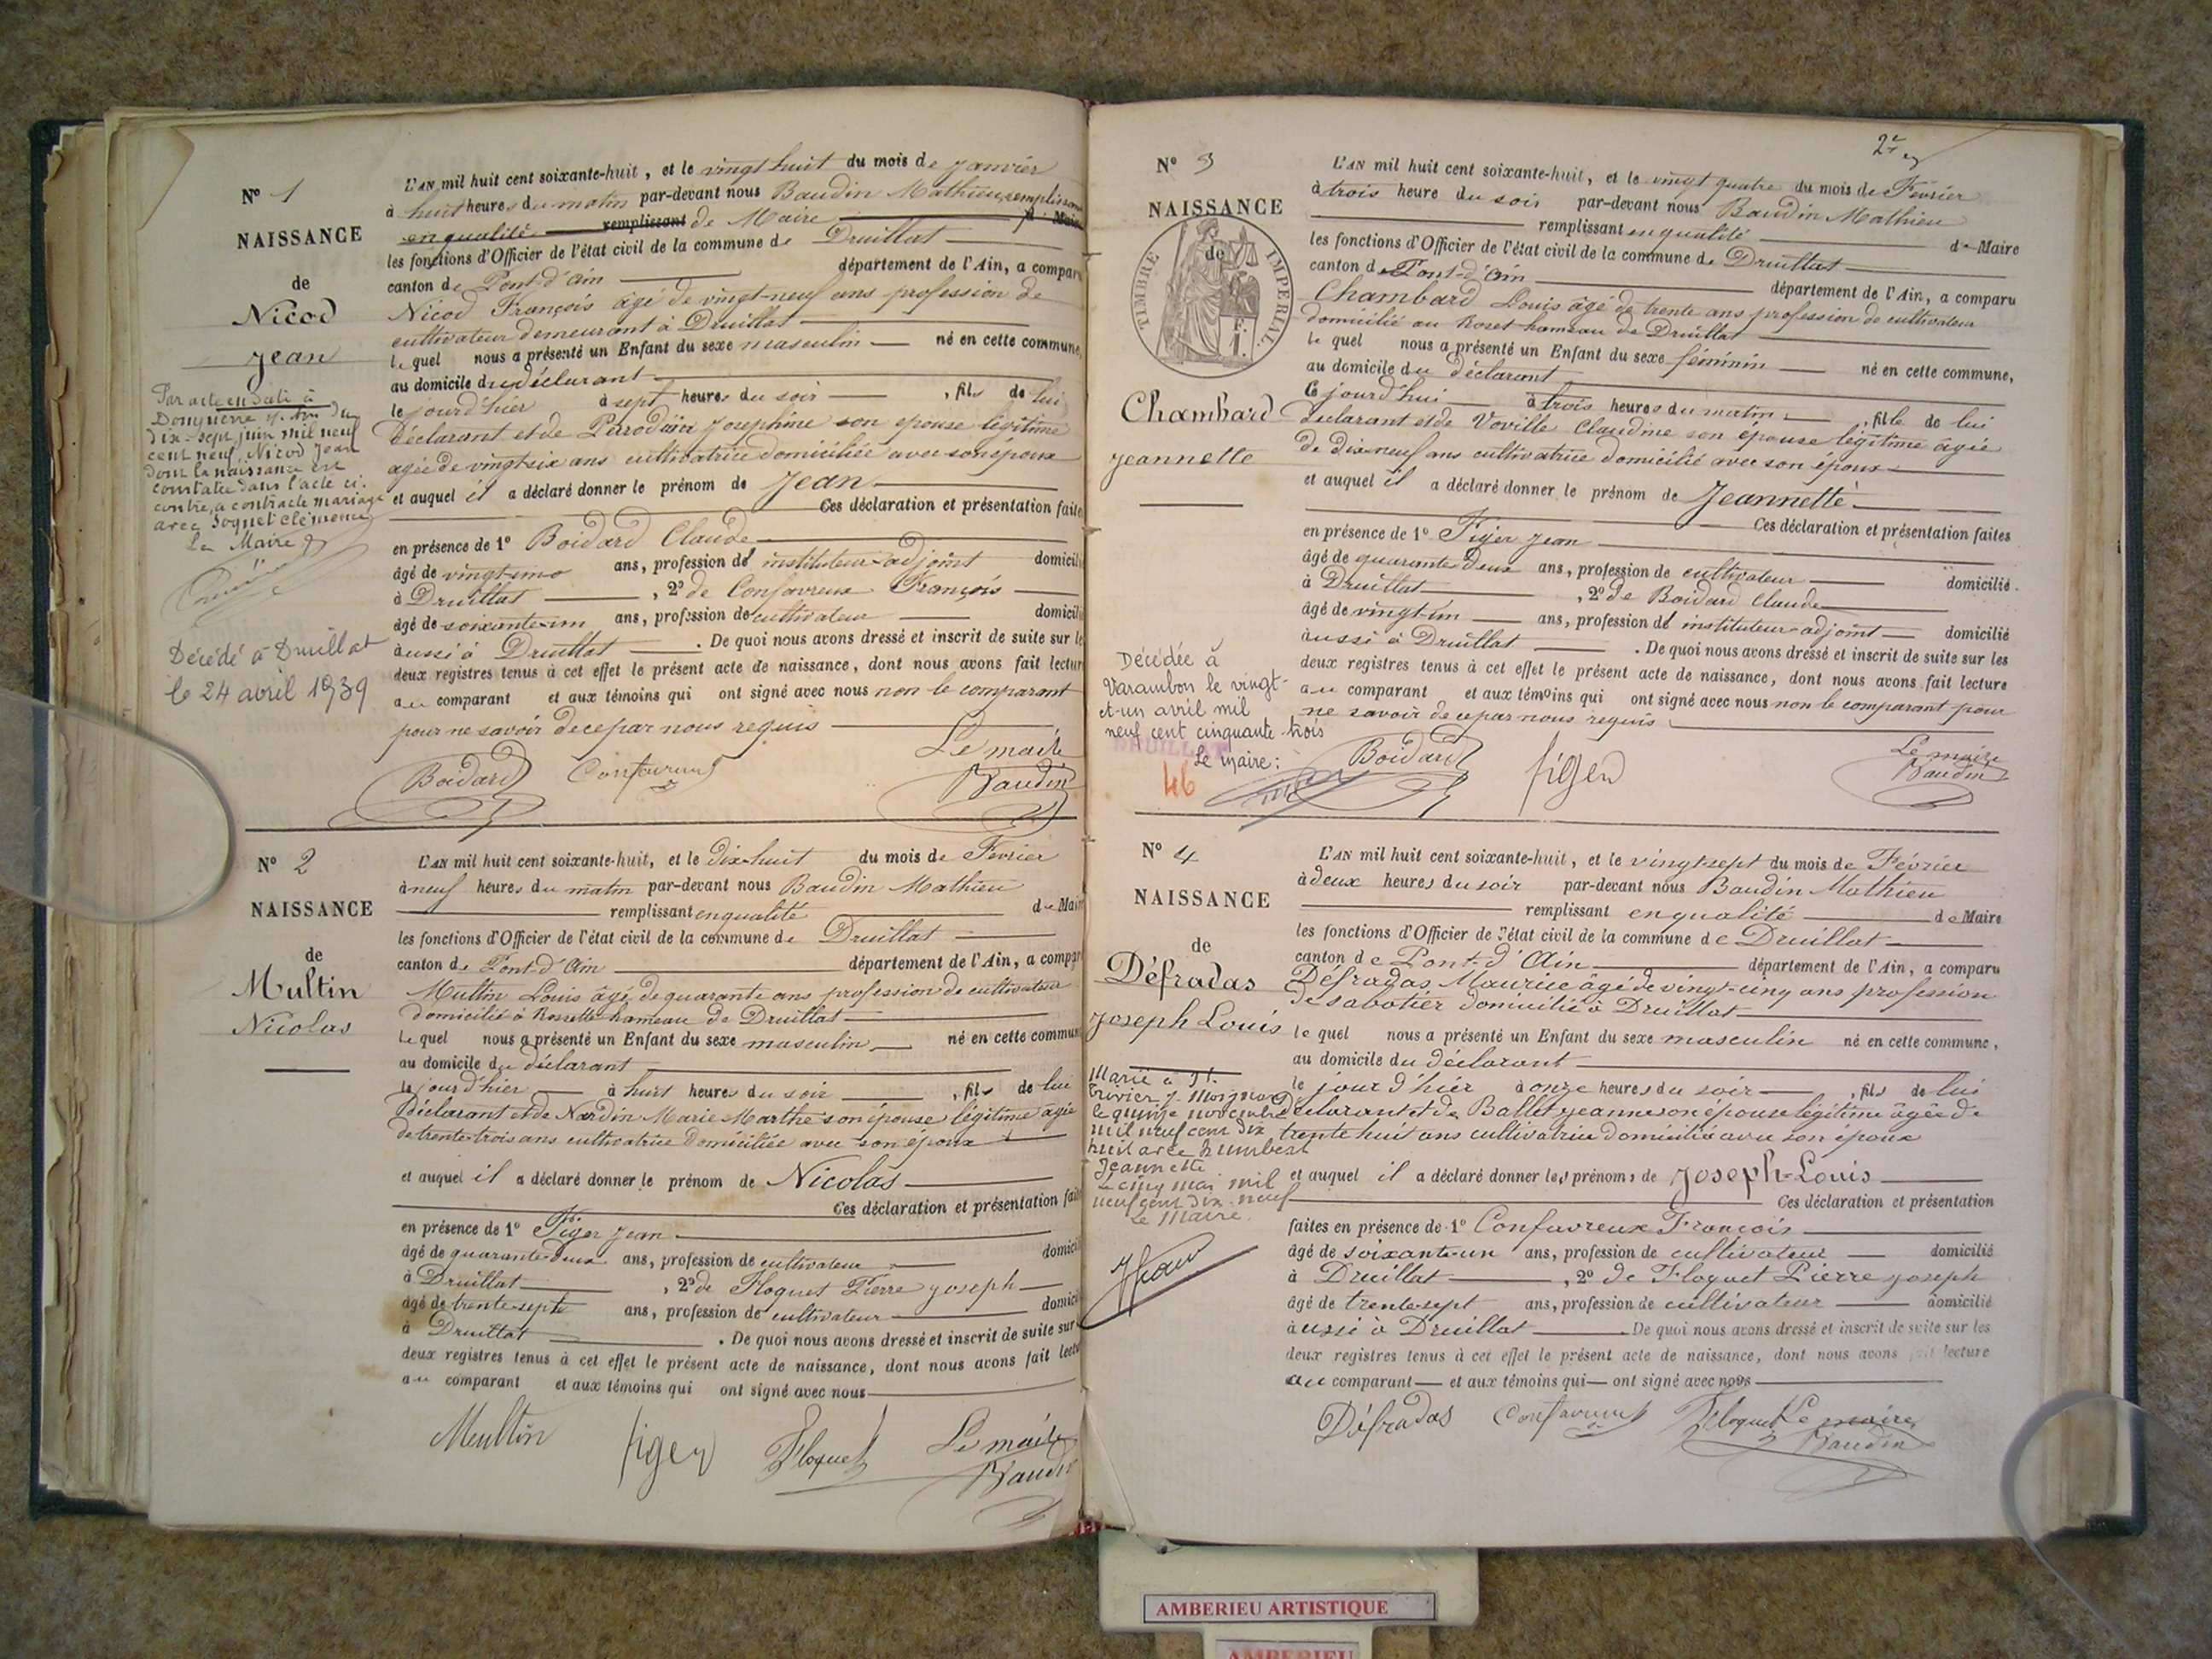 N° 1
NAISSANCE
de
Nicod
Jean
Par acte en date à
Dompierre s/ Ain du
dix-sept juin mil neuf
cent neuf, Nicod Jean
dont la naissance est
constatée dans l'acte ci-
contre, a contracté mariage
avec Soquet Clémence
Le Maire
Décédé à Druillat
le 24 avril 1939
L'AN mil huit cent soixante-huit, et le vingt huit du mois de Janvier
à huit heures du matin par-devant nous Baudin Mathieu remplissant
en qualité remplissant de Maire
les fonctions d'Officier de l'état civil de la commune de Druillat
canton de Pont-d'Ain département de l'Ain, a comparu
Nicod François âgé de vingt-neuf ans profession de
cultivateur demeurant à Druillat
lequel nous a présenté un Enfant du sexe masculin né en cette commune,
au domicile du déclarant
le jourd'hier à sept heures du soir, fils de lui
Déclarant et de Josephine son epouse légitime
agée de vingt six ans cultivatrice domiciliée avec son époux
et auquel il a déclaré donner le prénom de Jean
Ces déclaration et présentation faites
en présence de 1° Boidard Claude
âgé de vingt-un ans, profession d' instituteur-adjoint domicilié
à Druillat, 2° de Confavreux François
âgé de soixante-un ans, profession de cultivateur domicilié
aussi à Druillat. De quoi nous avons dressé et inscrit de suite sur les
deux registres tenus à cet effet le présent acte de naissance, dont nous avons fait lecture
au comparant et aux témoins qui ont signé avec nous non le comparant
pour ne savoir de ce par nous requis
Boidard Confavreux Le maire
Baudin
N° 2
NAISSANCE
de
Multin
Nicolas
L'AN mil huit cent soixante-huit, et le dix-huit du mois de Fevrier
à neuf heures du matin par-devant nous Baudin Mathieu
remplissant en qualité de Maire
les fonctions d'Officier de l'état civil de la commune de Druillat
canton de Pont-d'Ain département de l'Ain, a comparu
Multin Louis âgé de quarante ans profession de cultivateur
domicilié à Rossette hameau de Druillat
lequel nous a présenté un Enfant du sexe masculin né en cette commune
au domicile du déclarant
le jourd'hier à huit heures du soir, fils de lui
Déclarant et de Nardin Marie Marthe son épouse légitime âgée
de trente-trois ans cultivatrice domiciliée avec son époux
et auquel il a déclaré donner le prénom de Nicolas
Ces déclaration et présentation faites
en présence de 1° Figer Jean
âgé de quarante-deux ans, profession de cultivateur domicilié
à Druillat, 2° de Floquet Pierre Joseph
âgé de trente-sept ans, profession de cultivateur domicilié
à Druillat. De quoi nous avons dressé et inscrit de suite sur
deux registres tenus à cet effet le présent acte de naissance, dont nous avons fait lecture
au comparant et aux témoins qui ont signé avec nous
Meultin figer Floquet Le maire
Baudin
N° 3
NAISSANCE
de
TIMBRE IMPERIAL
Chambard
Jeannette
Décédée à
Varambon le vingt-
et-un avril mil
neuf cent cinquante-trois
Le Maire:
46
L'AN mil huit cent soixante-huit, et le vingt quatre du mois de Fevrier
à trois heure du soir par-devant nous Baudin Mathieu
remplissant en qualité de Maire
les fonctions d'Officier de l'état civil de la commune de Druillat
canton de Pont-d'Ain département de l'Ain, a comparu
Chambard Louis âgé de trente ans profession de cultivateur
domicilié au Roset hameau de Druillat
lequel nous a présenté un Enfant du sexe féminin né en cette commune,
au domicile du déclarant
Ce jourd'hui à trois heures du matin, fille de lui
Déclarant et de Voville Claudine son épouse légitime âgée
de dix-neuf ans cultivatrice domicilié avec son époux
et auquel il a déclaré donner le prénom de Jeannette
Ces déclaration et présentation faites
en présence de 1° Figer Jean
âgé de quarante-deux ans, profession de cultivateur domicilié
à Druillat, 2° de Boidard Claude
âgé de vingt-un ans, profession d' instituteur-adjoint domicilié
aussi à Druillat. De quoi nous avons dressé et inscrit de suite sur les
deux registres tenus à cet effet le présent acte de naissance, dont nous avons fait lecture
au comparant et aux témoins qui ont signé avec nous non le comparant pour
ne savoir de ce par nous requis
Boidard figer Le maire
Baudin
N° 4
NAISSANCE
de
Défradas
Joseph Louis
Marié à St
Trivier s/ Moignans
le quinze novembre
mil neuf cent dix
huit avec Humbert
Jeannette
Le cinq mai mil
neuf cent dix-neuf
Le Maire
L'AN mil huit cent soixante-huit, et le vingt-sept du mois de Février
à deux heures du soir par-devant nous Baudin Mathieu
remplissant en qualité de Maire
les fonctions d'Officier de l'état civil de la commune de Druillat
canton de Pont-d'Ain département de l'Ain, a comparu
Défradas Maurice âgé de vingt-cinq ans profession
de sabotier domicilié à Druillat
lequel nous a présenté un Enfant du sexe masculin né en cette commune,
au domicile du déclarant
le jour d'hier à onze heures du soir, fils de lui
Déclarant et de Ballet Jeanne son épouse légitime âgée de
trente huit ans cultivatrice domiciliée avec son époux
et auquel il a déclaré donner les prénoms de Joseph-Louis
Ces déclaration et présentation
faites en présence de 1° Confavreux François
âgé de soixante-un ans, profession de cultivateur domicilié
à Druillat, 2° de Floquet Pierre Joseph
âgé de trente-sept ans, profession de cultivateur domicilié
aussi à Druillat. De quoi nous avons dressé et inscrit de suite sur les
deux registres tenus à cet effet le présent acte de naissance, dont nous avons fait lecture
au comparant et aux témoins qui ont signé avec nous
Défradas Confavreux Floquet Le maire
Baudin
AMBERIEU ARTISTIQUE
AMBERIEU